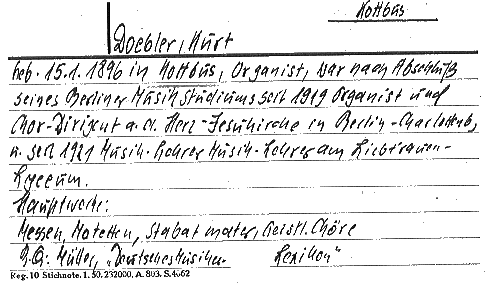 Kottbus
Doebler, Kurt
geb. 15.1.1896 in Kottbus, Organist, war nach Abschluß
seines Berliner Musikstudiums seit 1919 Organist und
Chor-Dirigent a. d. Herz-Jesukirche in Berlin-Charlottenb,
u. seit 1921 Musik-Lehrer Musik-Lehrer am Liebfrauen-
Lyceum.
Hauptwerke:
Messen, Motetten, Stabat mater, Geistl. Chöre
Müller, "Deutsches Musiker Lexikon"
Reg. 10 Stichnote. 1. 50. 232000. A. 803. S. 4062